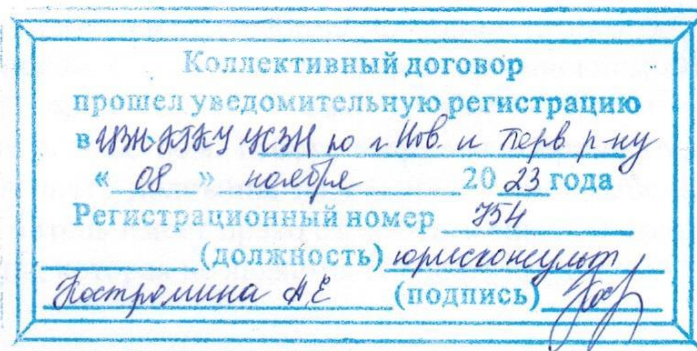 Коллективный договор
прошел уведомительную регистрацию
в ЦЗН УСЗН по г. Нов. и Перв. р-ну
« 08 » ноября 2023 года
Регистрационный номер 754
(должность) юрисконсульт
Костромина АЕ (подпись)